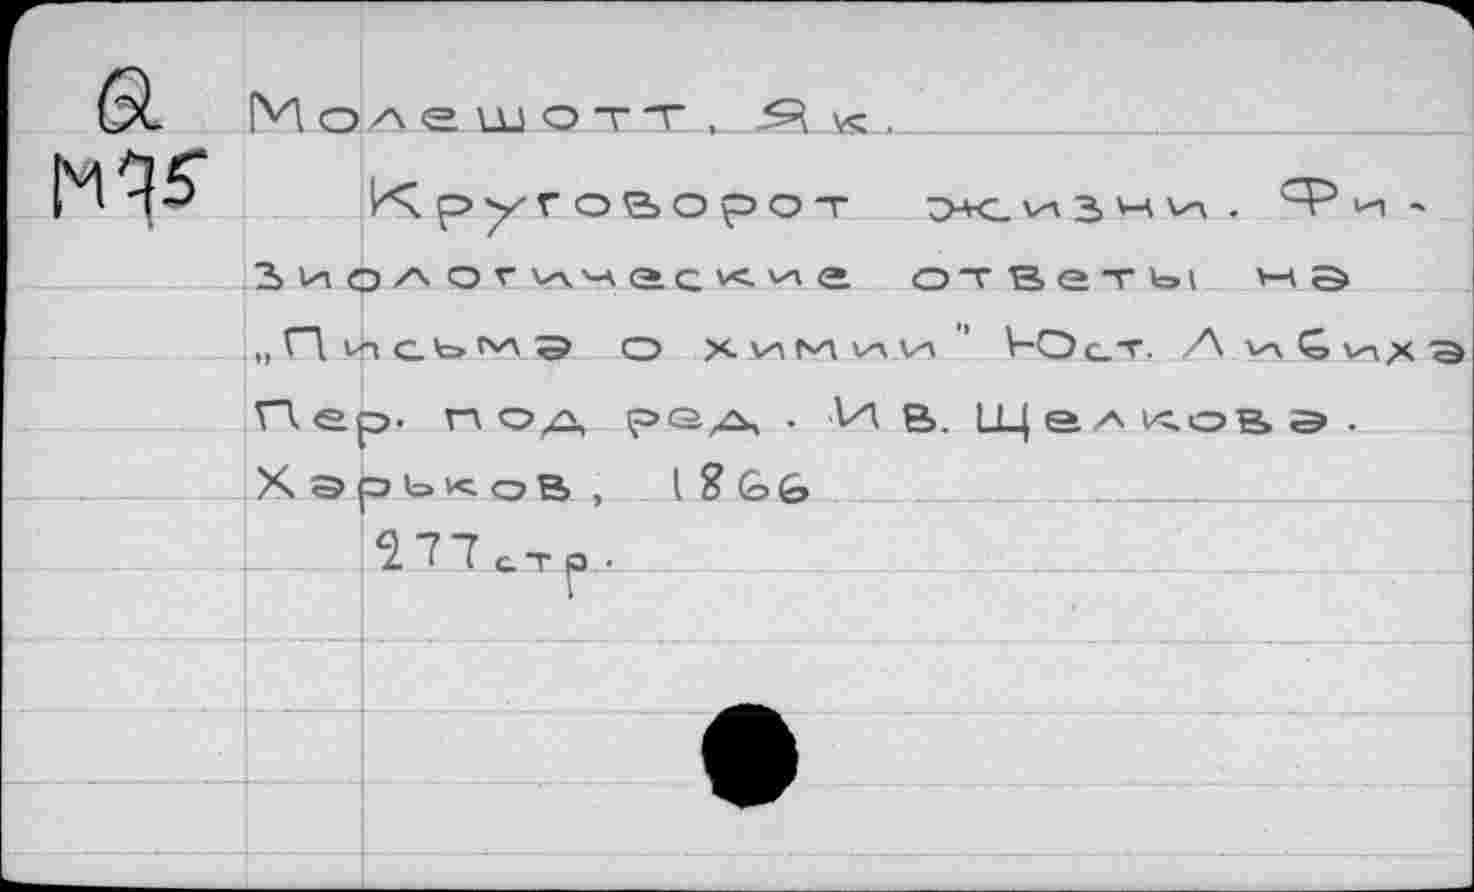 Молешотт, Як.
Круговорот жизни. Фи-
зиологические ответы на
„Письма о химии" Юст. Либиха
Пер. под ред. И В. Щелкова.
Харьков, 1866
277 стр.